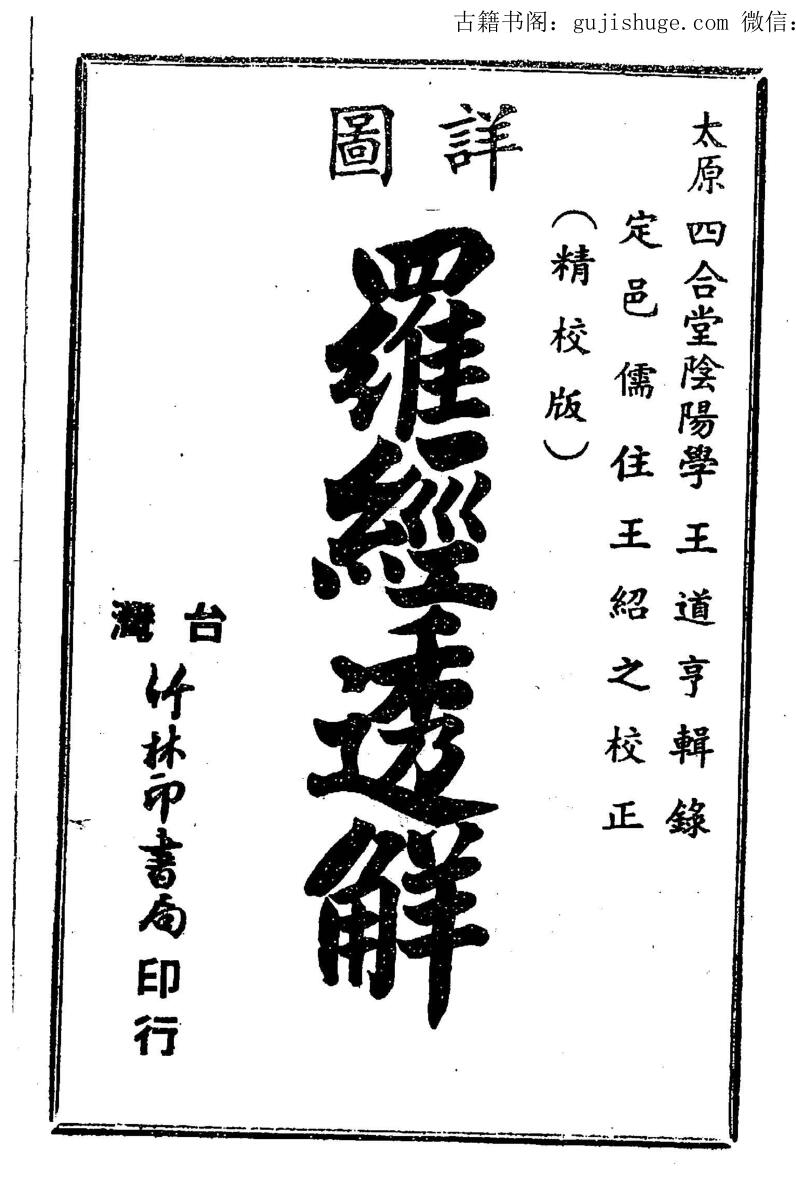 古籍书阁：gujishuge.com 微信：
太原 四合堂陰陽學 王道亨輯錄
定邑儒 住王紹之校正
（精校版）
詳圖
羅經透解
台灣
竹林印書局印行